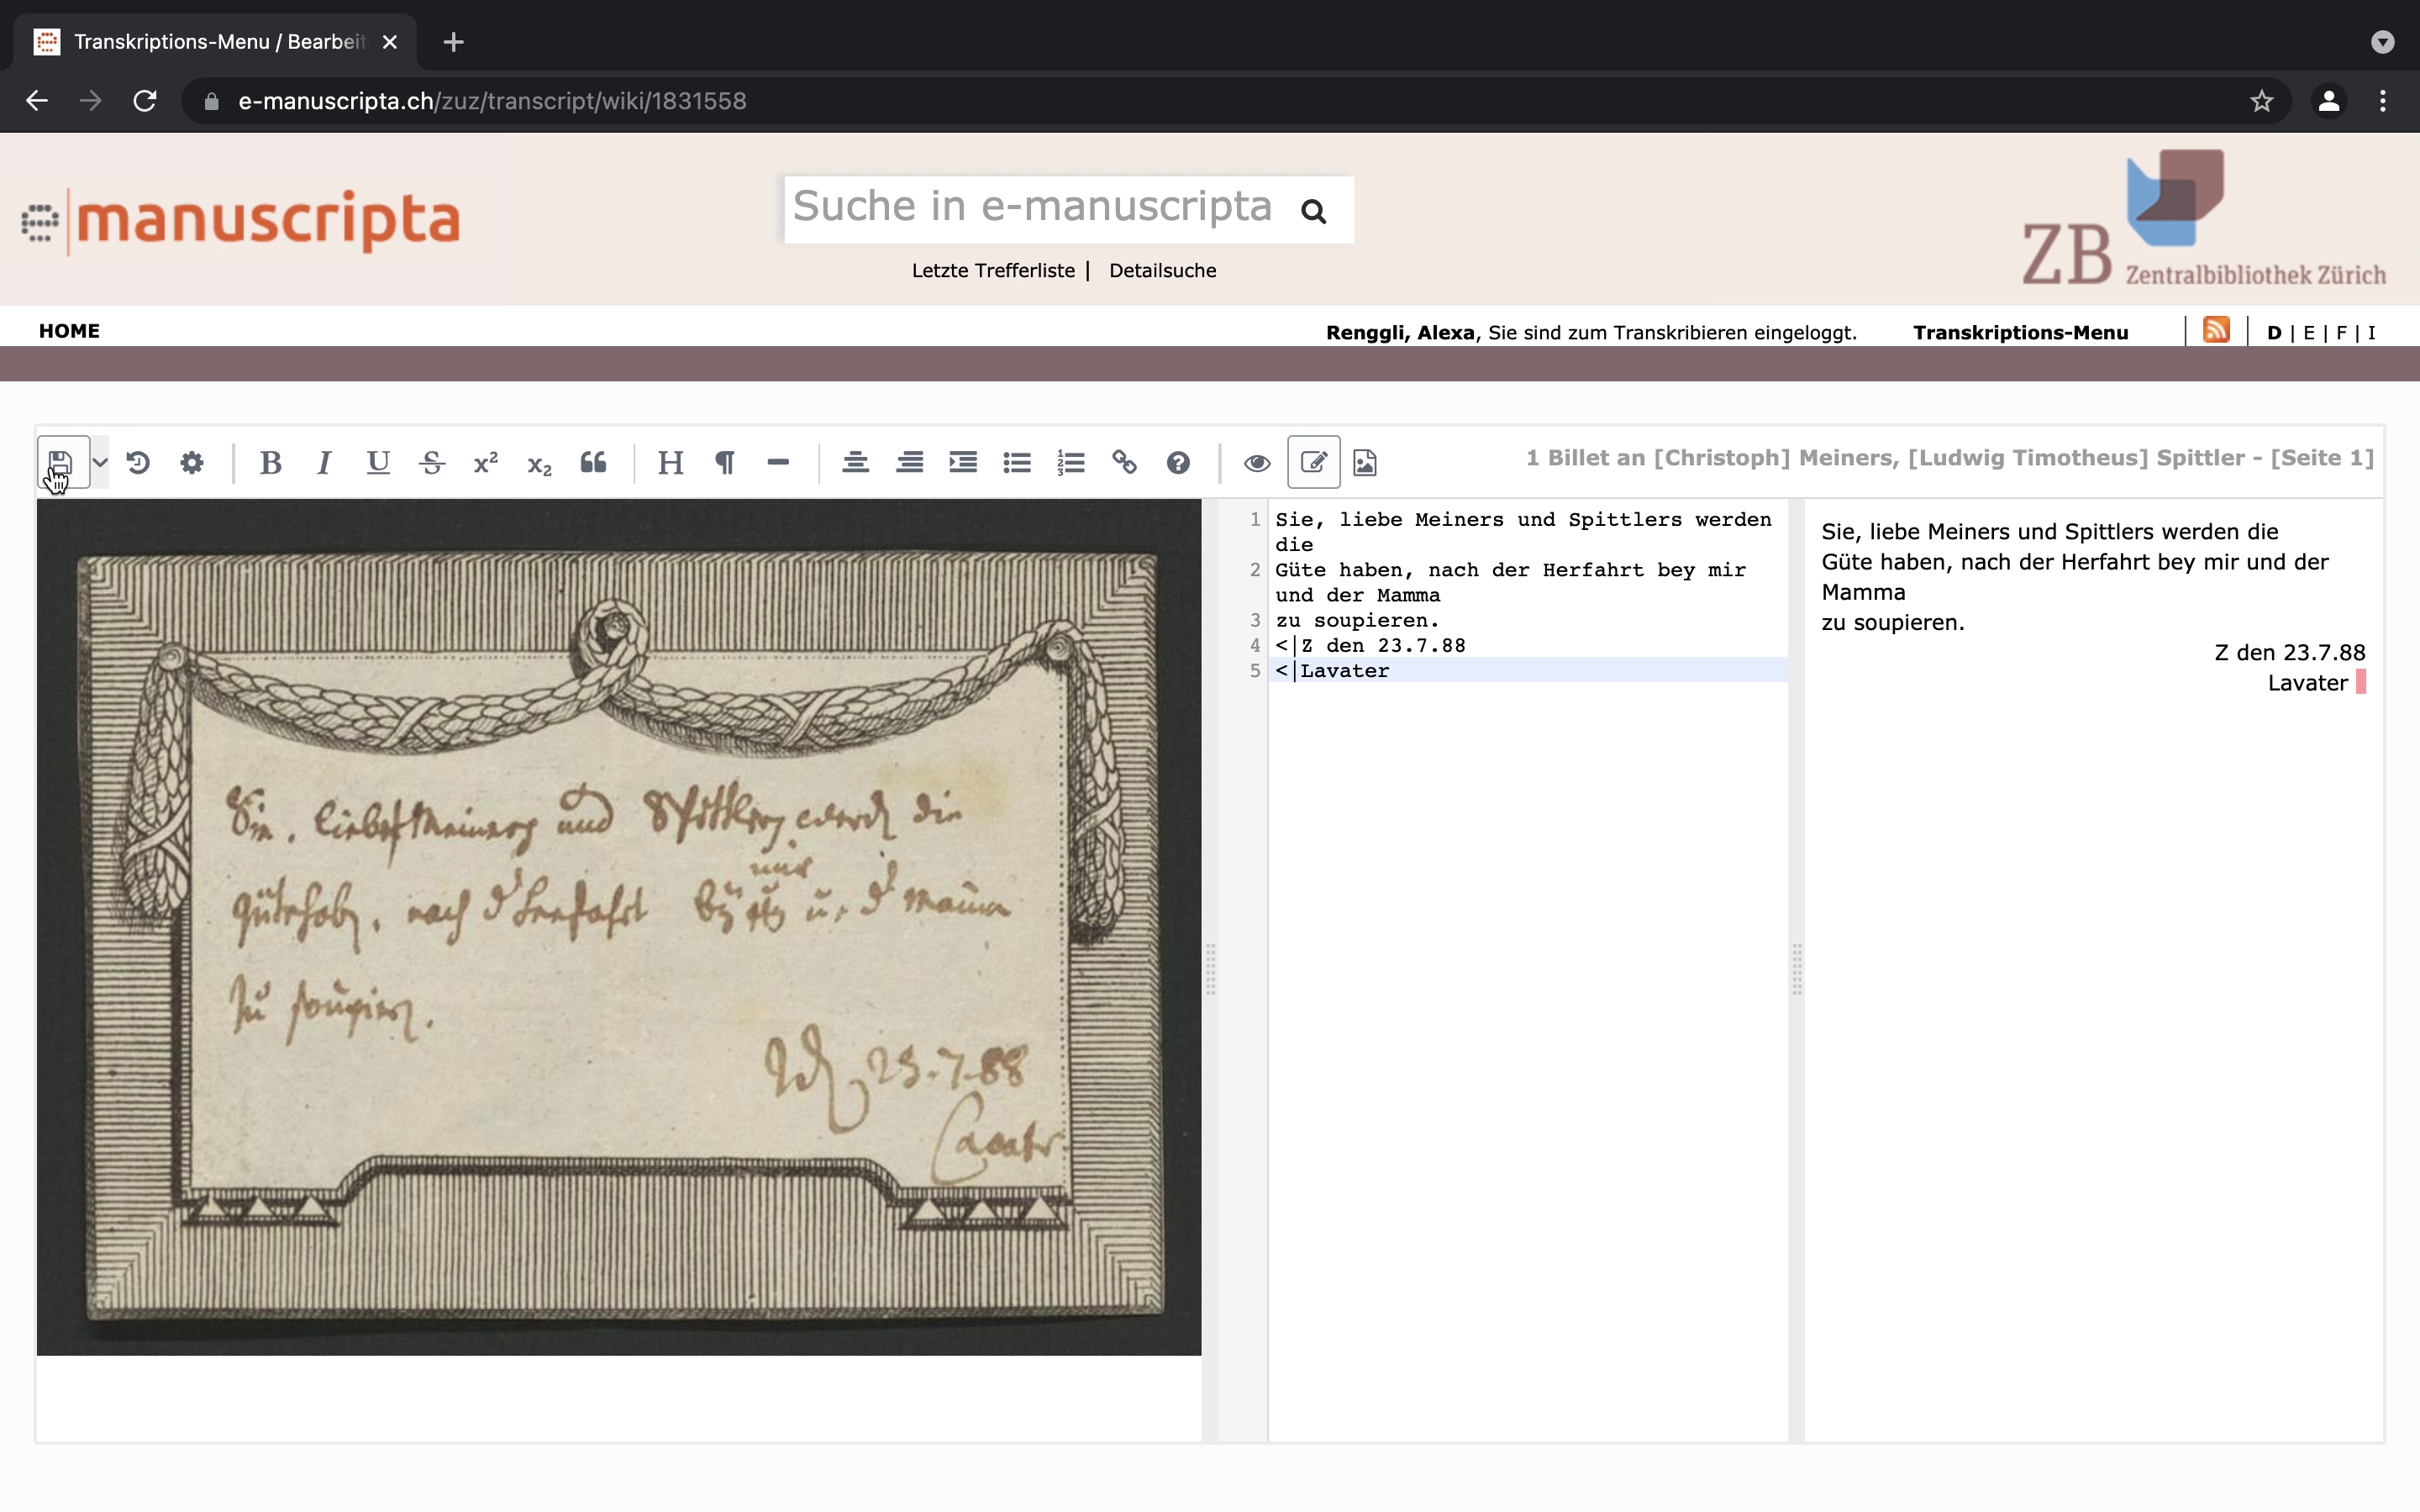 Transkriptions-Menu / Bearbeit
e-manuscripta.ch/zuz/transcript/wiki/1831558
manuscripta
Suche in e-manuscripta
Letzte Trefferliste | Detailsuche
ZB Zentralbibliothek Zürich
HOME
Renggli, Alexa, Sie sind zum Transkribieren eingeloggt.
Transkriptions-Menu
D | E | F | I
B I U S x² x₂ H ¶
1 Billet an [Christoph] Meiners, [Ludwig Timotheus] Spittler - [Seite 1]
Sie, liebe Meiners und Spittlers werd die
Güte hab, nach d Herfahrt bey mir u. d Mama
zu soupier.
23.7.88
Lavater
1 Sie, liebe Meiners und Spittlers werden
die
2 Güte haben, nach der Herfahrt bey mir
und der Mamma
3 zu soupieren.
4 <|Z den 23.7.88
5 <|Lavater
Sie, liebe Meiners und Spittlers werden die
Güte haben, nach der Herfahrt bey mir und der
Mamma
zu soupieren.
Z den 23.7.88
Lavater